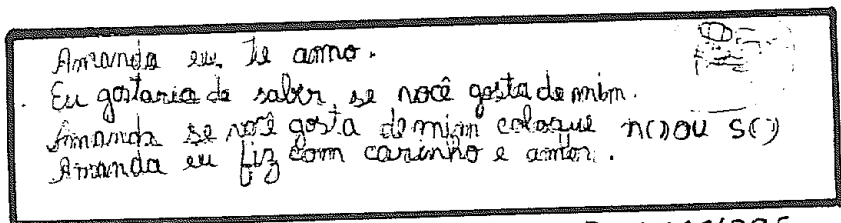 Amanda eu te amo.
Eu gostaria de saber, se você gosta de mim.
Amanda se você gosta de mim coloque n() ou s()
Amanda eu fiz com carinho e amor.